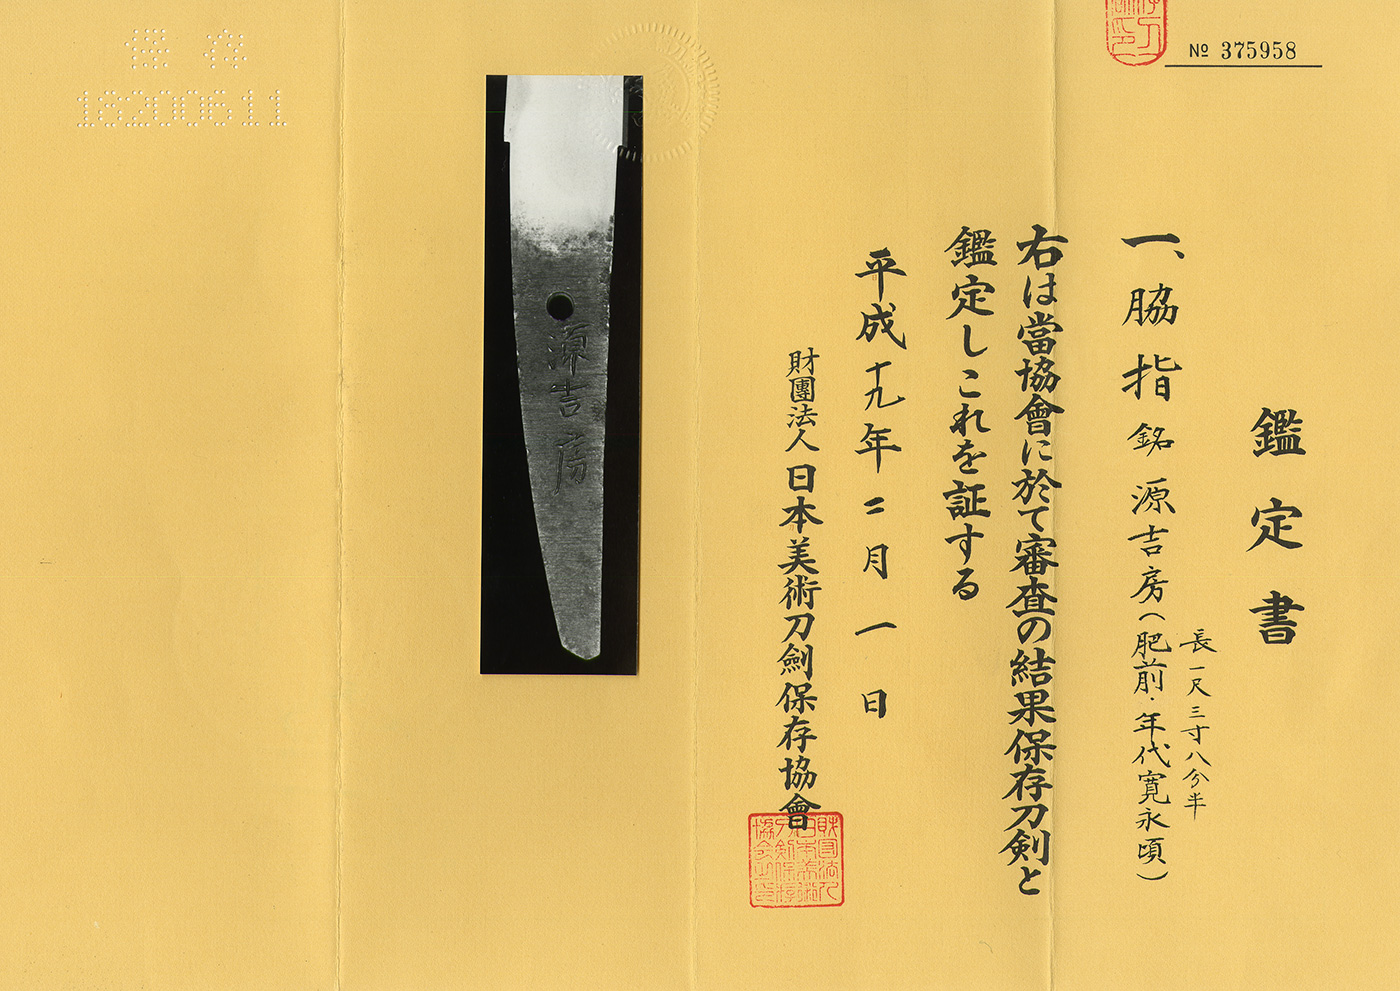 № 375958
鑑定書
一、脇指 銘 源吉房(肥前・年代寛永頃)
長一尺三寸八分半
右は當協會に於て審査の結果保存刀剣と
鑑定しこれを証する
平成十九年二月一日
財團法人 日本美術刀劍保存協會
源吉房
保存
18200611